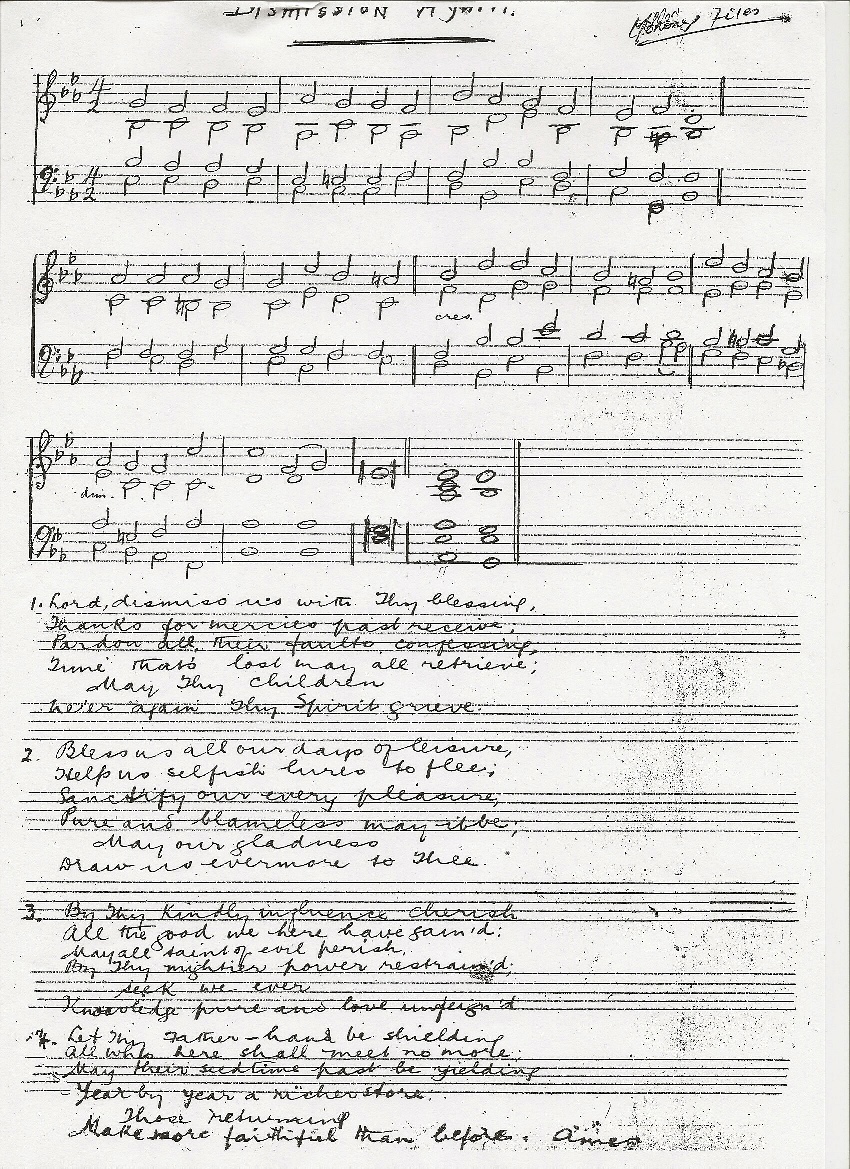 Dismission Hymn.
Files
4 2
4 2
cres.
dim.
1. Lord, dismiss us with Thy blessing,
Thanks for mercies past receive;
Pardon all, their faults confessing,
Time that's lost may all retrieve;
May Thy children
Ne'er again Thy Spirit grieve.
2. Bless us all our days of leisure,
Help us selfish lures to flee;
Sanctify our every pleasure,
Pure and blameless may it be;
May our gladness
Draw us evermore to Thee.
3. By Thy Kindly influence cherish
All the good we here have gain'd;
May all taint of evil perish,
By Thy mightier power restrain'd;
Seek we ever
Knowledge pure and love unfeign'd
4. Let Thy Father-hand be shielding
All who here shall meet no more;
May their seedtime past be yielding
Year by year a richer store.
Those returning
Make more faithful than before. Amen